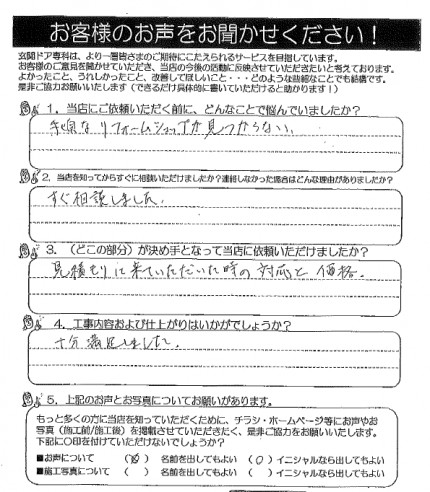 お客様のお声をお聞かせください！
玄関ドア専科は、より一層皆さまのご期待にこたえられるサービスを目指しています。
お客様のご意見を聞かせていただき、当店の今後の活動に反映させていただきたいと考えております。
よかったこと、うれしかったこと、改善してほしいこと・・・どのような些細なことでも結構です。
是非ご協力お願いいたします（できるだけ具体的に書いていただけると助かります！）
1．当店にご依頼いただく前に、どんなことで悩んでいましたか？
手頃なリフォームショップが見つからない。
2．当店を知ってからすぐに相談いただけましたか？連絡しなかった場合はどんな理由がありましたか？
すぐ相談しました。
3．（どこの部分）が決め手となって当店に依頼いただけましたか？
見積もりに来ていただいた時の対応と価格。
4．工事内容および仕上がりはいかがでしょうか？
十分満足しました。
5．上記のお声とお写真についてお願いがあります。
もっと多くの方に当店を知っていただくために、チラシ・ホームページ等にお声やお
写真（施工前/施工後）を掲載させていただきたく、是非ご協力をお願いいたします。
下記に〇印を付けていただけないでしょうか？
■お声について （ ） 名前を出してもよい （〇）イニシャルなら出してもよい
■施工写真について （ ） 名前を出してもよい （ ）イニシャルなら出してもよい